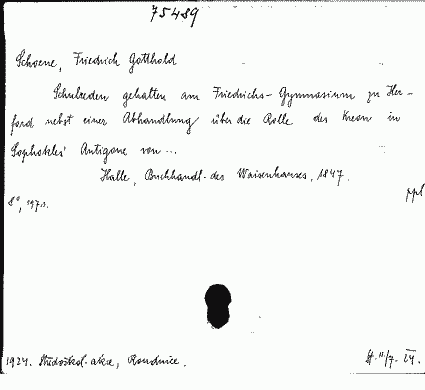 75489
Schoene, Friedrich Gotthold
Schulreden gehalten am Friedrichs-Gymnasium zu Her-
ford nebst einer Abhandlung über die Rolle des Kreon in
Sophokles' Antigone von ...
Halle, Buchhandl. des Waisenhauses, 1847.
ppl
8°, 197 s.
1924. Středoškol. akce, Roudnice.